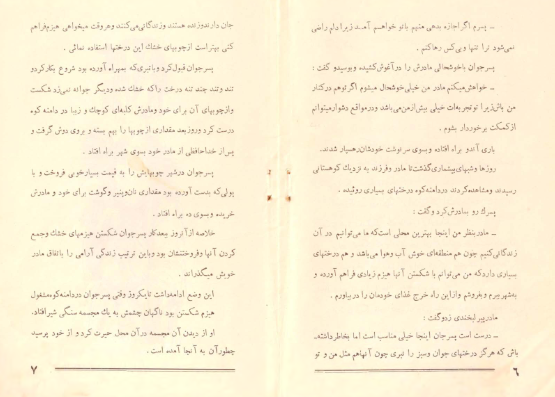 ـ پسرم اگر اجازه بدهی منهم باتو خواهم آمد زیرا دلم راضی
نمی‌شود ترا تنها و بی‌کس رها کنم .
پسر جوان با خوشحالی مادرش را در آغوش کشیده و بوسید و گفت :
ـ خواهش میکنم مادر من خیلی خوشحال میشوم اگر تو هم در کنار
من باشی زیرا تو تجربه‌ات خیلی بیش از من می‌باشد و در مواقع دشوار میتوانم
از کمکت برخوردار بشوم .
باری آندو براه افتاده و بسوی سرنوشت خودشان رهسپار شدند.
روزها و شبهای بیشماری گذشت تا مادر و فرزند به نزدیک کوهستانی
رسیدند و مشاهده کردند در دامنه کوه درختهای بسیاری روئیده .
پسرک رو بمادرش کرد و گفت :
ـ مادر بنظر من اینجا بهترین محلی است که ما می‌توانیم در آن
زندگانی کنیم چون هم منطقه‌ای خوش آب و هوا می‌باشد و هم درختهای
بسیاری دارد که من می‌توانم با شکستن آنها هیزم زیادی فراهم آورده و
به شهر ببرم و بفروشم و از این راه خرج غذای خودمان را در بیاورم .
مادر پیر لبخندی زد و گفت :
ـ درست است پسر جان اینجا خیلی مناسب است اما بخاطر داشته‌ـ
باش که هرگز درختهای جوان و سبز را نبری چون آنها هم مثل من و تو
۶
جان دارند و زنده هستند و زندگانی می‌کنند و هر وقت میخواهی هیزم فراهم
کنی بهتر است از چوبهای خشک این درختها استفاده نمائی .
پسر جوان قبول کرد و با تبری که بهمراه آورده بود شروع بکار کرد و
تند و تند چند تنه درخت را که خشک شده و دیگر جوانه نمی‌زد شکست
و از چوبهای آن برای خود و مادرش کلبه‌ای کوچک و زیبا در دامنه کوه
درست کرد و روز بعد مقداری از چوبها را بهم بسته و بروی دوش گرفت و
پس از خداحافظی از مادر خود بسوی شهر براه افتاد .
پسر جوان در شهر چوبهایش را به قیمت بسیار خوبی فروخت و با
پولی که بدست آورده بود مقداری نان و پنیر و گوشت برای خود و مادرش
خریده و بسوی ده براه افتاد .
خلاصه از آنروز ببعد کار پسر جوان شکستن هیزمهای خشک و جمع
کردن آنها و فروختنشان بود و باین ترتیب زندگی آرامی را باتفاق مادر
خویش میگذراند .
این وضع ادامه داشت تا یکروز وقتی پسر جوان در دامنه کوه مشغول
هیزم شکستن بود ناگهان چشمش به یک مجسمه سنگی شیر افتاد.
او از دیدن آن مجسمه در آن محل حیرت کرد و از خود پرسید
چطور آن به آنجا آمده است .
۷